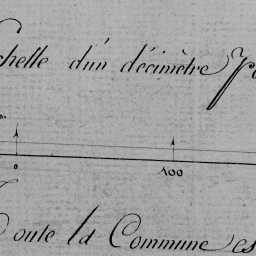 chelle d'un décimètre po
0 100
oute la Commune es